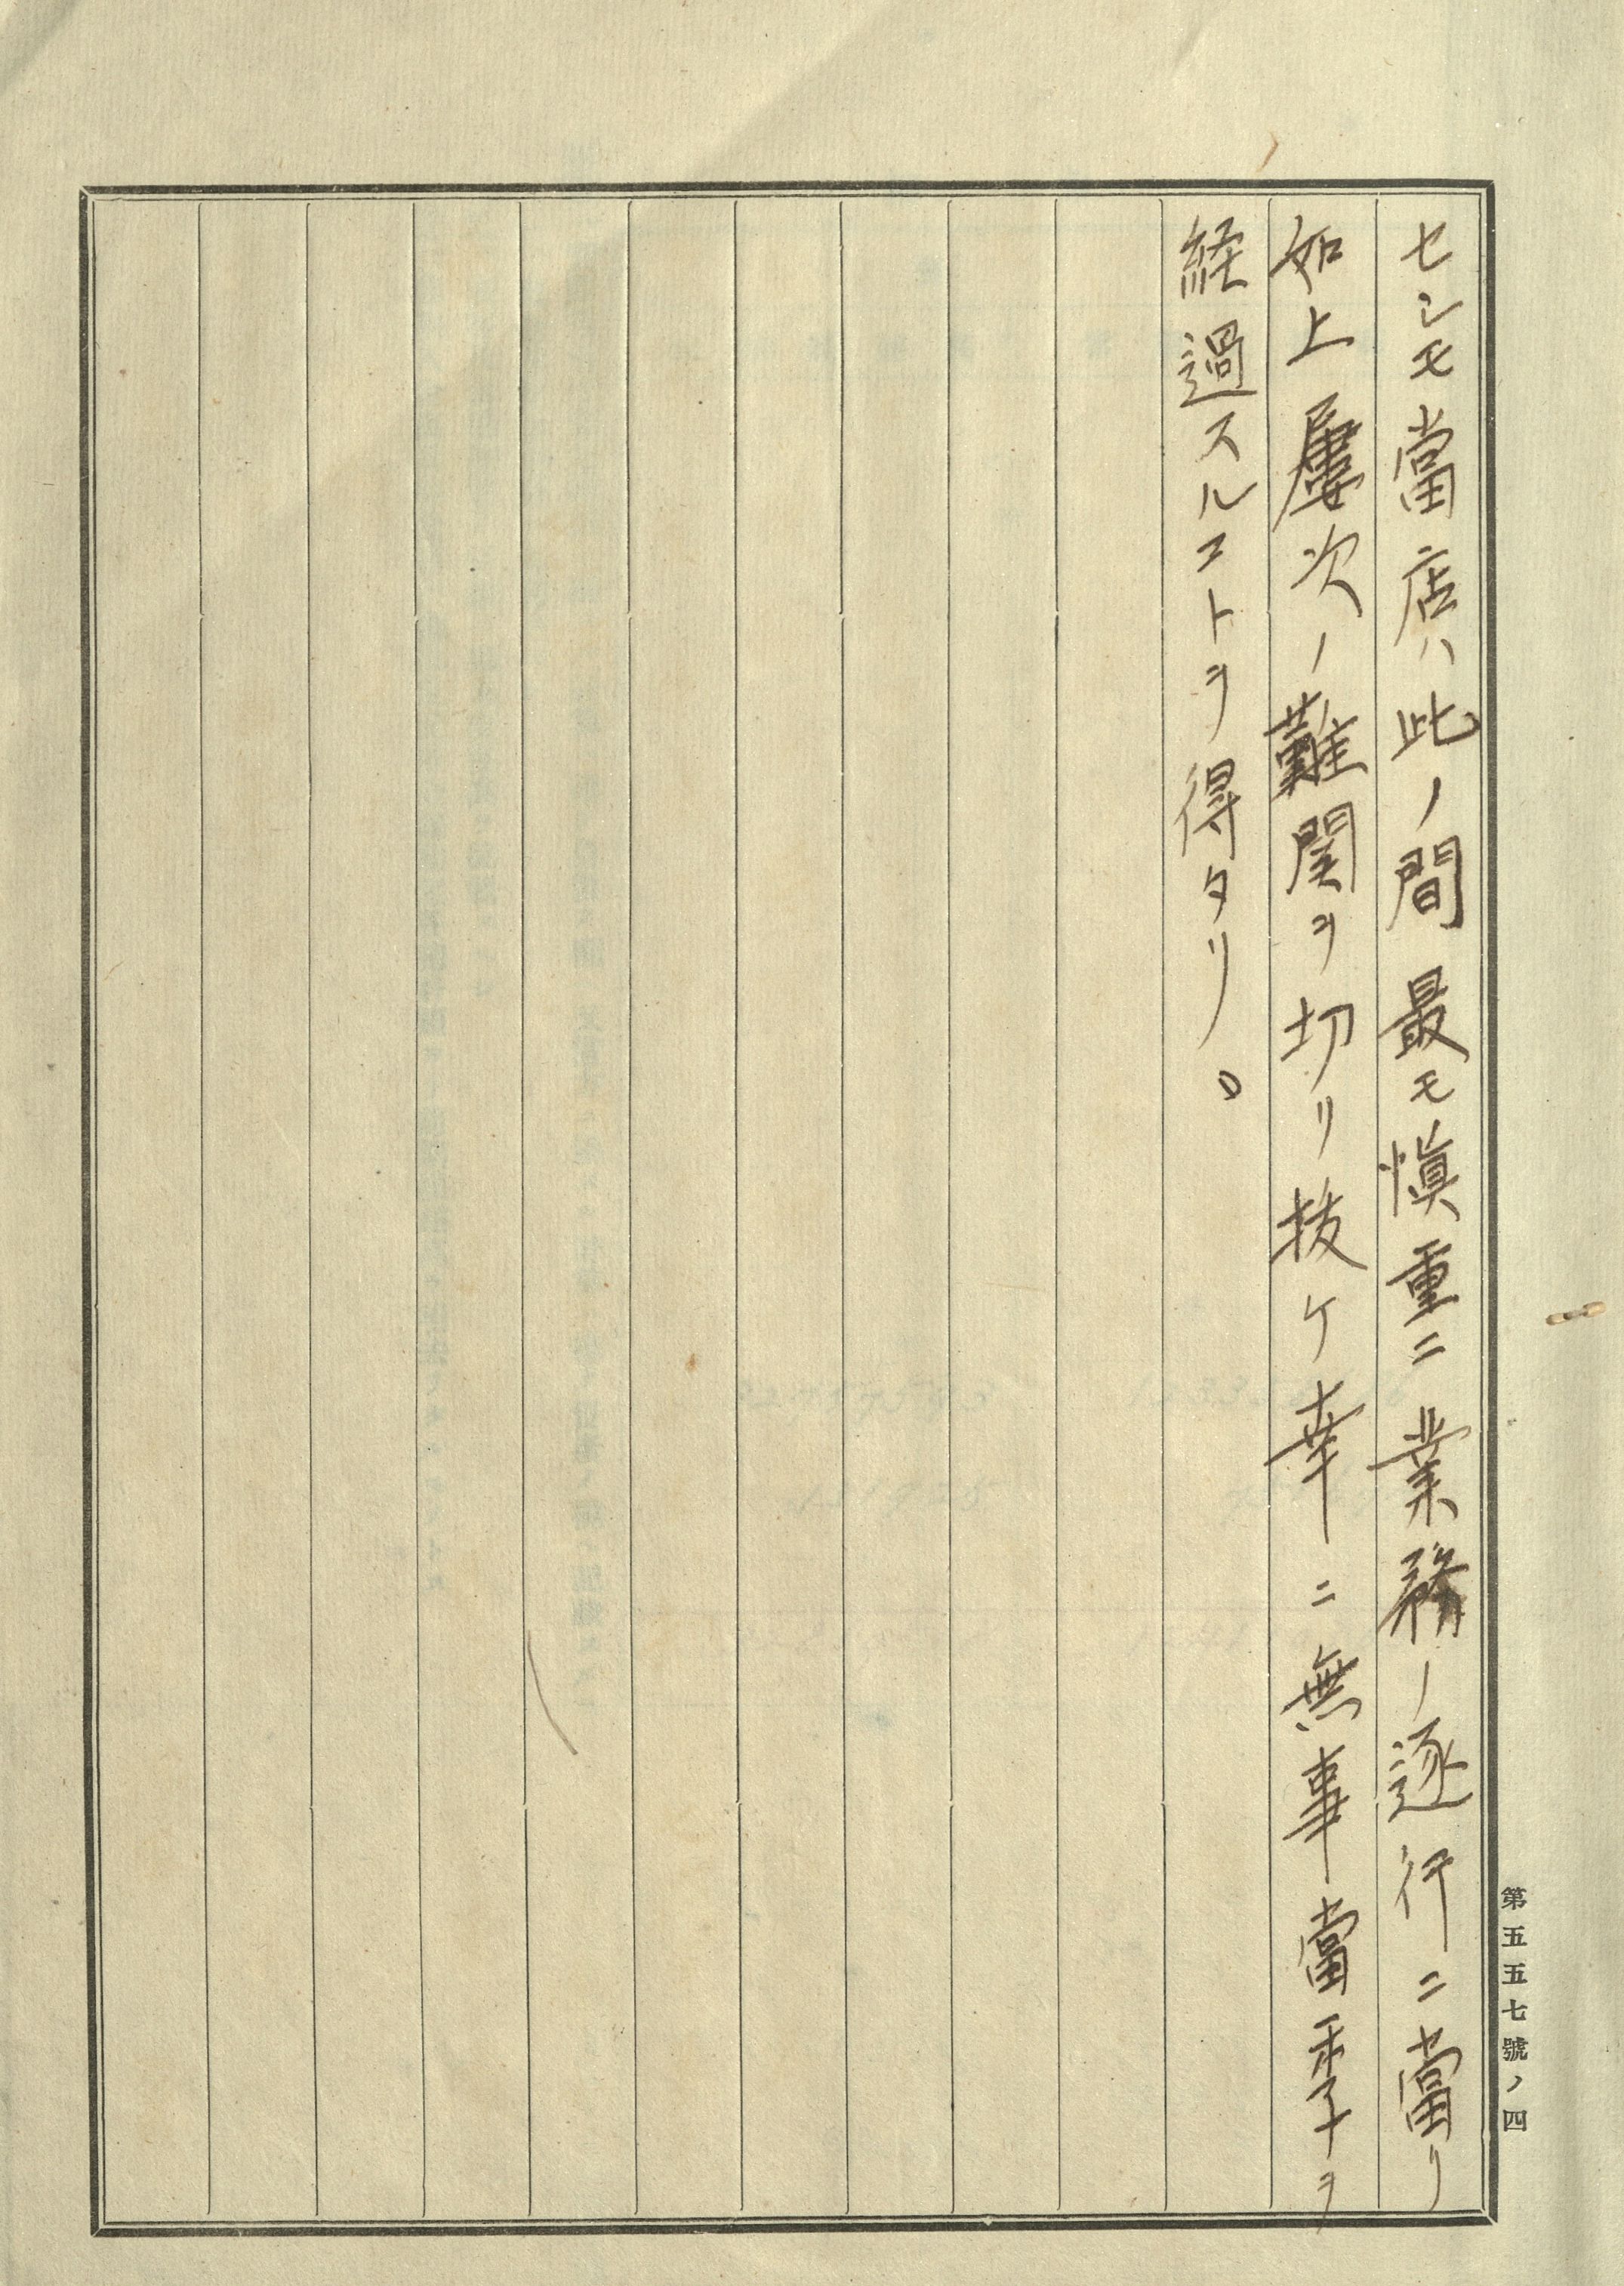 セシモ當店ハ此ノ間最モ愼重ニ業務ノ逐行ニ當リ
如上屢次ノ難関ヲ切リ拔ケ幸ニ無事當季ヲ
経過スルコトヲ得タリ。
第五五七號ノ四